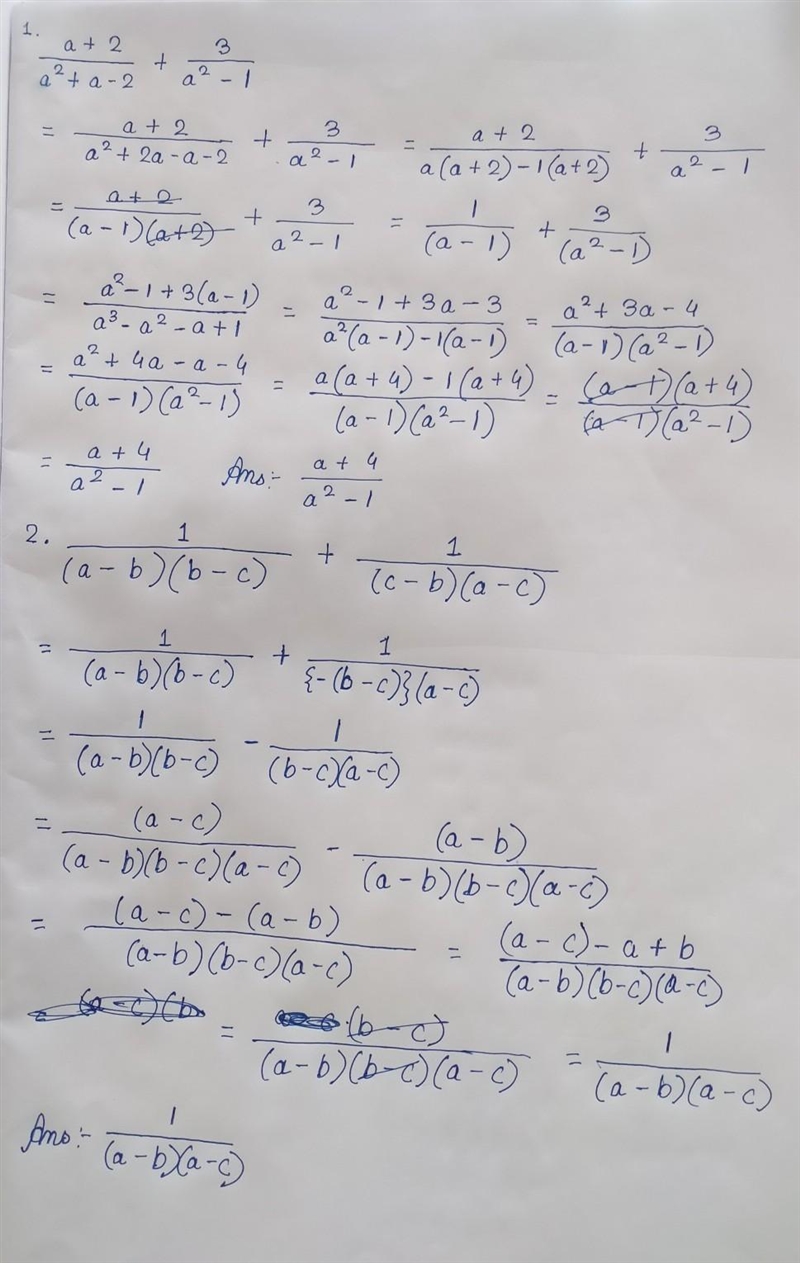 1.
(a + 2)/(a² + a - 2) + 3/(a² - 1)
= (a + 2)/(a² + 2a - a - 2) + 3/(a² - 1) = (a + 2)/(a(a + 2) - 1(a + 2)) + 3/(a² - 1)
= (a + 2)/((a - 1)(a + 2)) + 3/(a² - 1) = 1/(a - 1) + 3/(a² - 1)
= (a² - 1 + 3(a - 1))/(a³ - a² - a + 1) = (a² - 1 + 3a - 3)/(a²(a - 1) - 1(a - 1)) = (a² + 3a - 4)/((a - 1)(a² - 1))
= (a² + 4a - a - 4)/((a - 1)(a² - 1)) = (a(a + 4) - 1(a + 4))/((a - 1)(a² - 1)) = ((a - 1)(a + 4))/((a - 1)(a² - 1))
= (a + 4)/(a² - 1) Ans:- (a + 4)/(a² - 1)
2. 1/((a - b)(b - c)) + 1/((c - b)(a - c))
= 1/((a - b)(b - c)) + 1/({-(b - c)}(a - c))
= 1/((a - b)(b - c)) - 1/((b - c)(a - c))
= (a - c)/((a - b)(b - c)(a - c)) - (a - b)/((a - b)(b - c)(a - c))
= ((a - c) - (a - b))/((a - b)(b - c)(a - c)) = ((a - c) - a + b)/((a - b)(b - c)(a - c))
= (b - c)/((a - b)(b - c)(a - c)) = 1/((a - b)(a - c))
Ans:- 1/((a - b)(a - c))